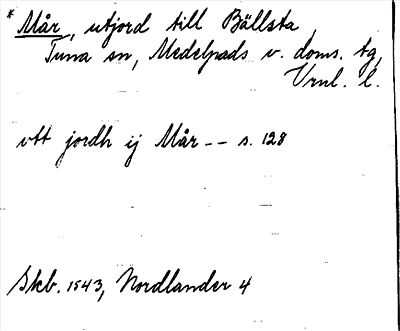 * Mår, utjord till Bällsta
Tuna sn, Medelpads v. doms. tg,
Vrnl. l.
vtt jordh ij Mår -- s. 128
Skb. 1543, Nordlander 4